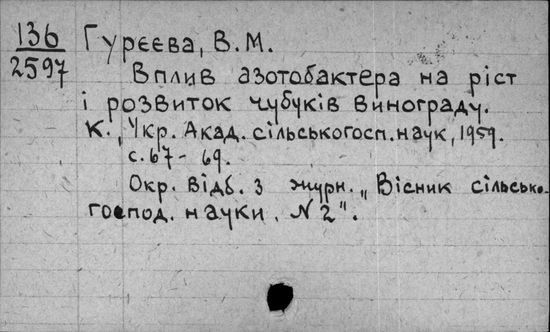 136
2597
Гурєєва, В.М.
Вплив азотобактера на ріст
і розвиток чубуків винограду.
К., Укр. Акад. сільськогосп. наук, 1959.
с. 67-69.
Окр. відб. з журн. „Вісник сільсько-
господ. науки, N 2".